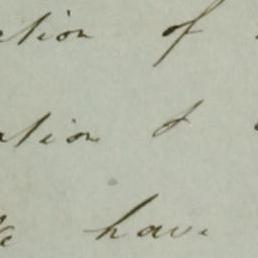 ction of
ation &
have